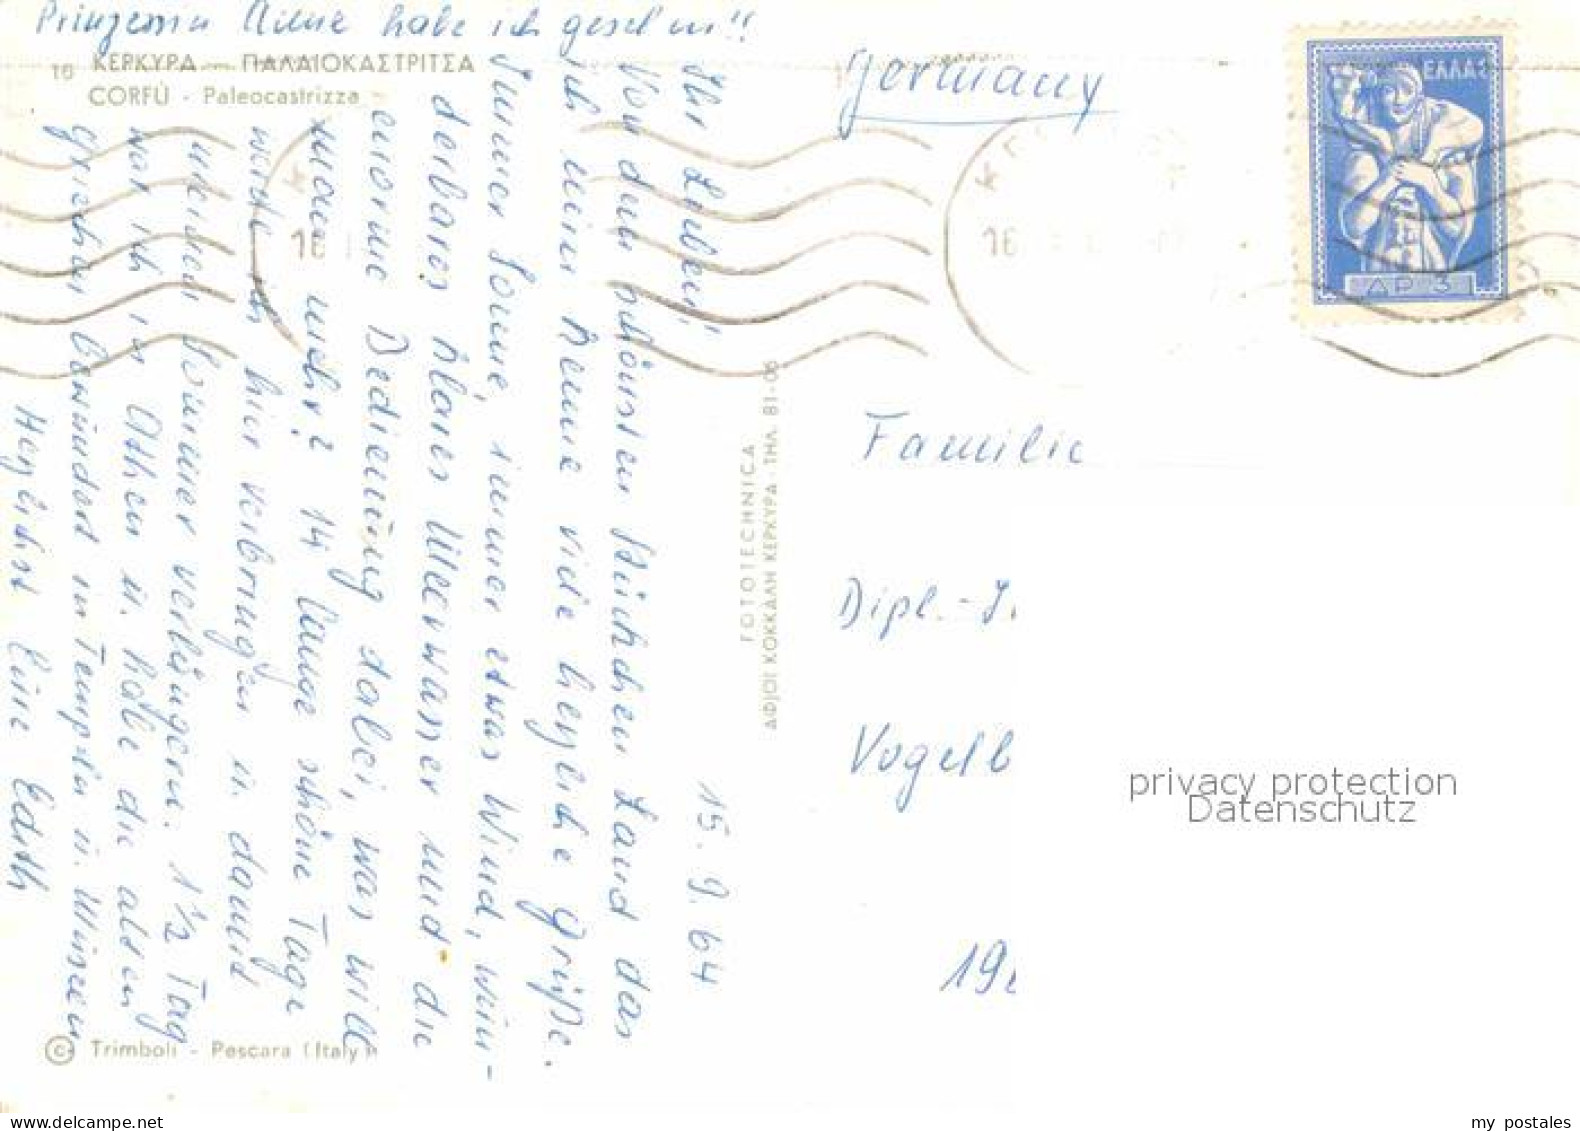 Prinzessin Irene habe ich gesehen!!
10 ΚΕΡΚΥΡΑ - ΠΑΛΑΙΟΚΑΣΤΡΙΤΣΑ
CORFÙ - Paleocastrizza
15. 9. 64
Ihr Lieben,
Von dem schönsten Stückchen Land das
ich kenne viele herzliche Grüße.
Immer Sonne, immer etwas Wind, wun-
derbares klares Meerwasser und die
enorme Bedienung dabei, was will
man mehr? 14 lange schöne Tage
werde ich hier verbringen u. damit
meinen Sommer verlängern. 1 1/2 Tag
war ich in Athen u. habe die alten
Griechen bewundert in Tempeln u. Museen
Herzlichst Eure Edith
© Trimboli - Pescara (Italy)
FOTOTECHNICA
ΑΦ)ΟΙ ΚΟΚΚΑΛΗ ΚΕΡΚΥΡΑ - ΤΗΛ. 81-06
Germany
ΕΛΛΑΣ
ΔΡ 3
16
16
Familie
Dipl.-I
Vogelb
19
privacy protection
Datenschutz
my postales